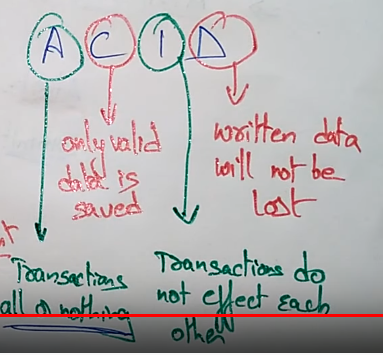 A C I D
only valid
data is
saved
written data
will not be
lost
Transactions
all or nothing
Transactions do
not effect each
other